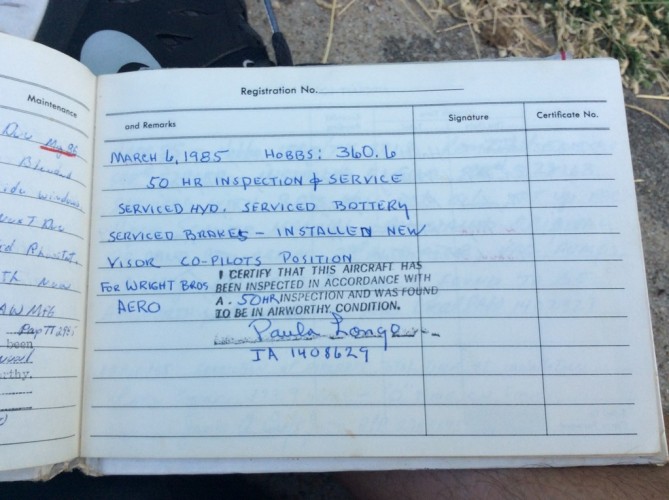 Maintenance
Due May 86
windows
Next Due
been
Registration No.
and Remarks
Signature
Certificate No.
MARCH 6, 1985 HOBBS: 360.6
50 HR INSPECTION & SERVICE
SERVICED HYD. SERVICED BOTTERY
SERVICED BRAKES - INSTALLEN NEW
VISOR CO-PILOTS POSITION
FOR WRIGHT BROS
AERO
I CERTIFY THAT THIS AIRCRAFT HAS
BEEN INSPECTED IN ACCORDANCE WITH
A. 50HR INSPECTION AND WAS FOUND
TO BE IN AIRWORTHY CONDITION.
Paula Longe
IA 1408629